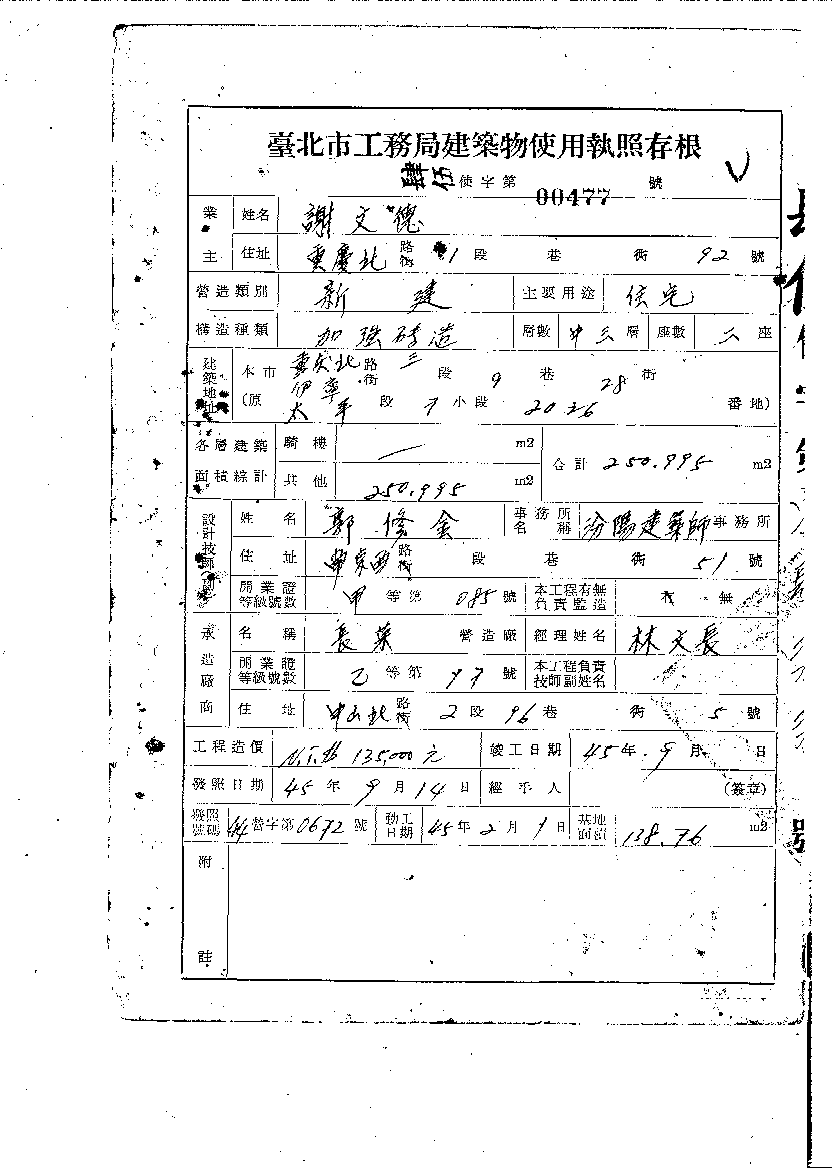 臺北市工務局建築物使用執照存根
肆伍使字第 00477 號
業主 姓名 謝文德
住址 重慶北路街 1段 巷 街 92號
營造類別 新建 主要用途 住宅
構造種類 加強磚造 層數 層 座數 座
建築地址 本市 重慶北路街 三段 9巷 28街
(原 太平段 小段 2026 番地)
各層建築面積綜計 騎樓 — m2 合計 250.995 m2
其他 250.995 m2
設計技師 姓名 郭修金 事務所名稱 汾陽建築師事務所
住址 路街 段 巷 街 51號
開業證等級號數 甲等第 085號 本工程有無負責監造 有 無
承造廠商 名稱 長業 營造廠 經理姓名 林文長
開業證等級號數 乙等第 號 本工程負責技師副姓名
住址 中山北路街 2段 96巷 街 5號
工程造價 N.T.$ 135,000元 竣工日期 45年 9月 日
發照日期 45年 9月 14日 經手人 (簽章)
發照號碼 44營字第 0672號 動工日期 45年 2月 1日 基地面積 138.76 m2
附註